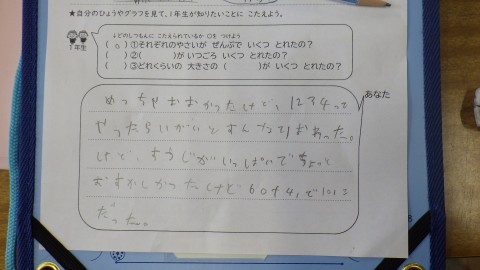 ★自分のひょうやグラフを見て、1年生が知りたいことに こたえよう。
↓どのしつもんに こたえられているか ○を つけよう
1年生
( o )①それぞれのやさいが ぜんぶで いくつ とれたの?
( )②( )が いつごろ いくつ とれたの?
( )③どれくらいの 大きさの ( )が いくつ とれたの?
あなた
めっちゃおおかったけど、1234って
やったらいがいと すんなりおわった。
けど、すうじがいっぱいでちょっと
むずかしかったけど
だった。